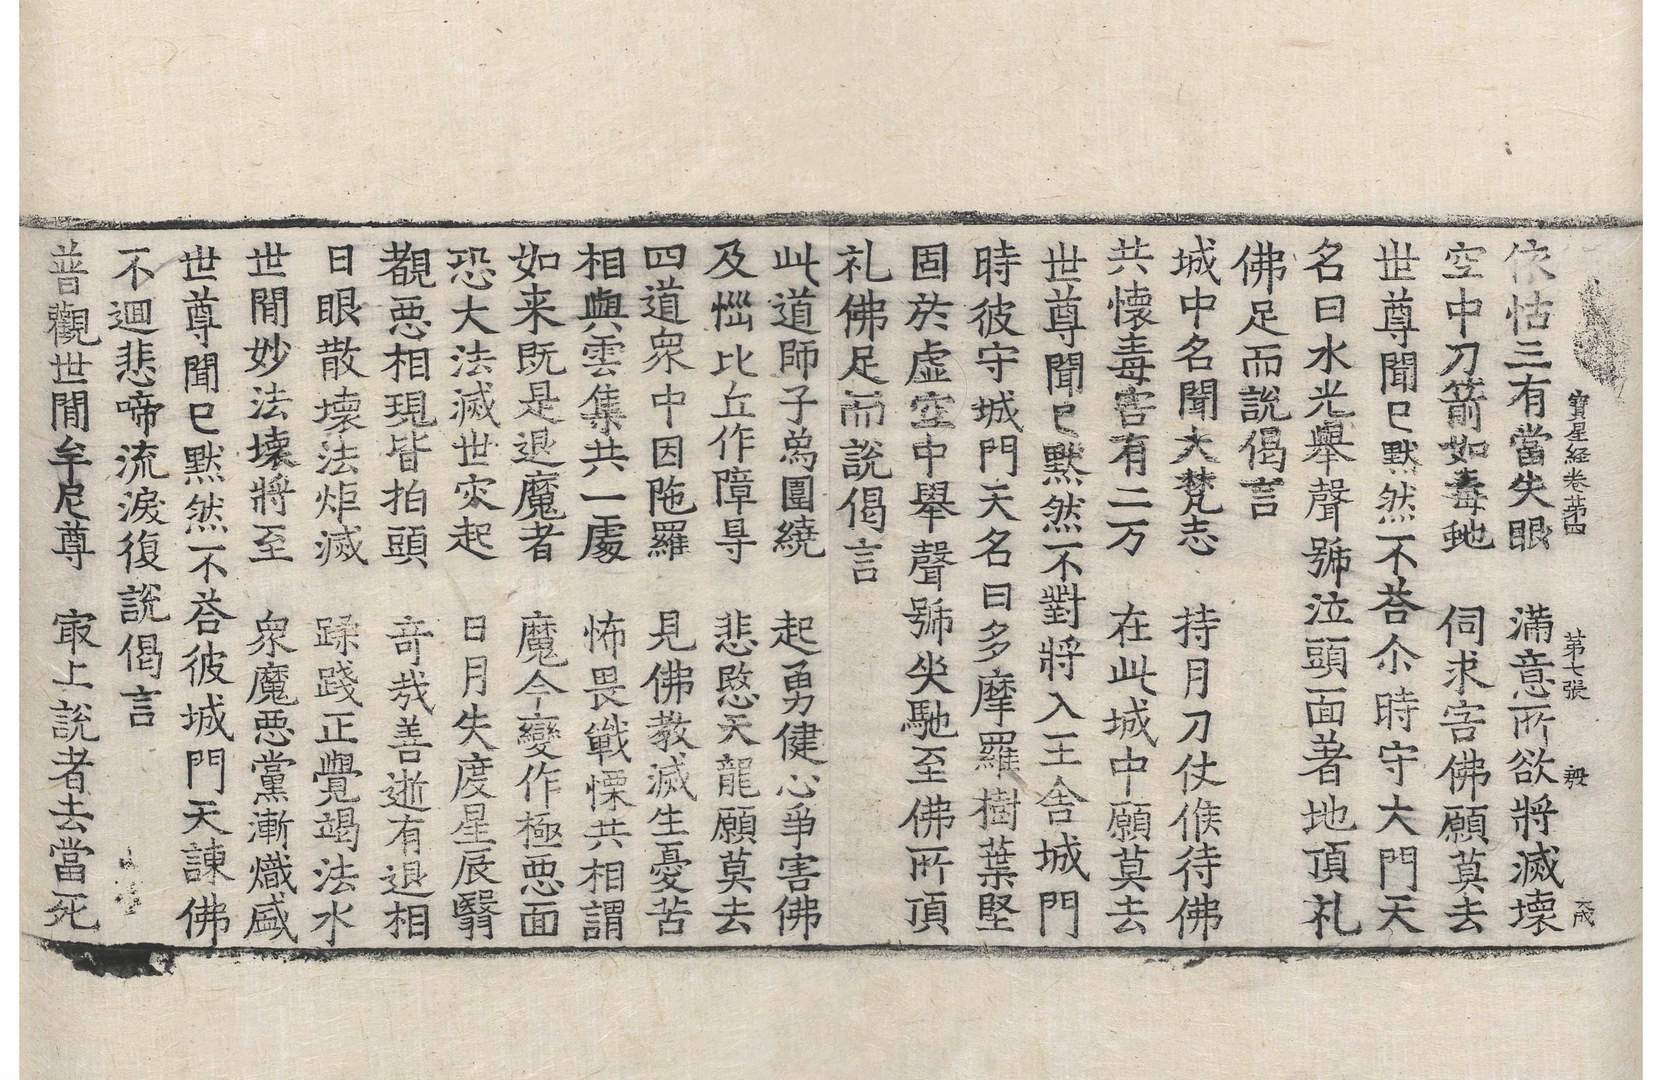 寶星経卷苐四 苐七張 毀
依怙三有當失眼 滿意所欲將滅壞
空中刀箭如毒虵 伺求害佛願莫去
世尊聞已默然不荅尒時守大門天
名曰水光舉聲號泣頭面著地頂礼
佛足而說偈言
城中名聞大梵志 持月刀仗候待佛
共懷毒害有二万 在此城中願莫去
世尊聞已默然不對將入王舍城門
時彼守城門天名曰多摩羅樹葉堅
固於虛空中舉聲號哭馳至佛所頂
礼佛足而說偈言
此道師子為圍繞 起勇健心爭害佛
及惱比丘作障㝵 悲愍天龍願莫去
四道眾中因陁羅 見佛教滅生憂苦
相與雲集共一處 怖畏戰慄共相謂
如来既是退魔者 魔今變作極惡面
恐大法滅世灾起 日月失度星辰翳
覩惡相現皆拍頭 竒哉善逝有退相
日眼散壞法炬滅 蹂踐正覺竭法水
世間妙法壞將至 眾魔惡黨漸熾盛
世尊聞已默然不荅彼城門天諫佛
不迴悲啼流淚復說偈言
普觀世間牟尼尊 冣上說者去當死